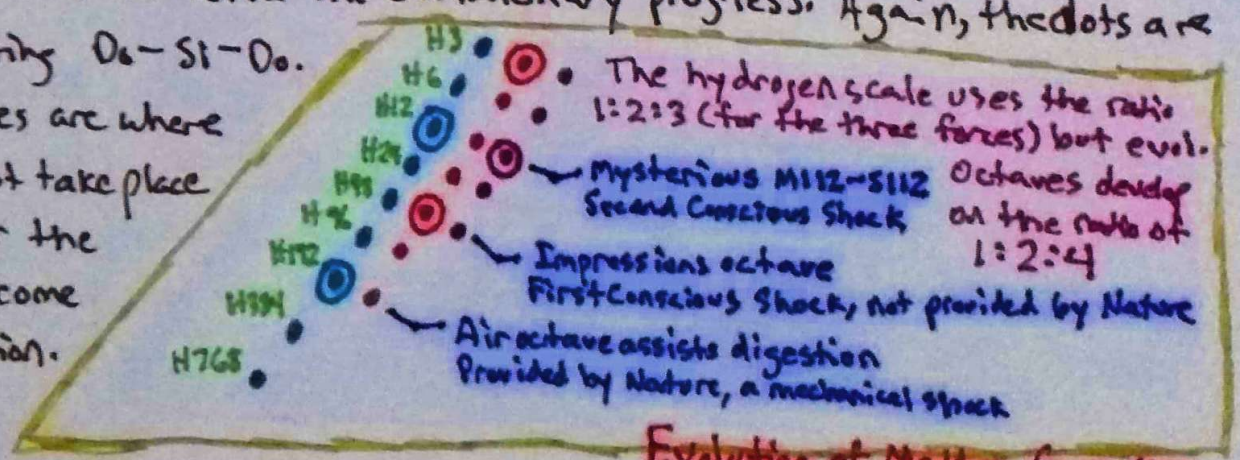 progress. Again, the dots are
ing Do-Si-Do.
es are where
t take place
the
come
ion.
H3
H6
H12
H24
H48
H96
H192
H384
H768
The hydrogen scale uses the ratio
1:2:3 (for the three forces) but evol.
Octaves develop
on the ratio of
1:2:4
Mysterious M112~S112
Second Conscious Shock
Impressions octave
First Conscious Shock, not provided by Nature
Air octave assists digestion
Provided by Nature, a mechanical shock
Evolution of